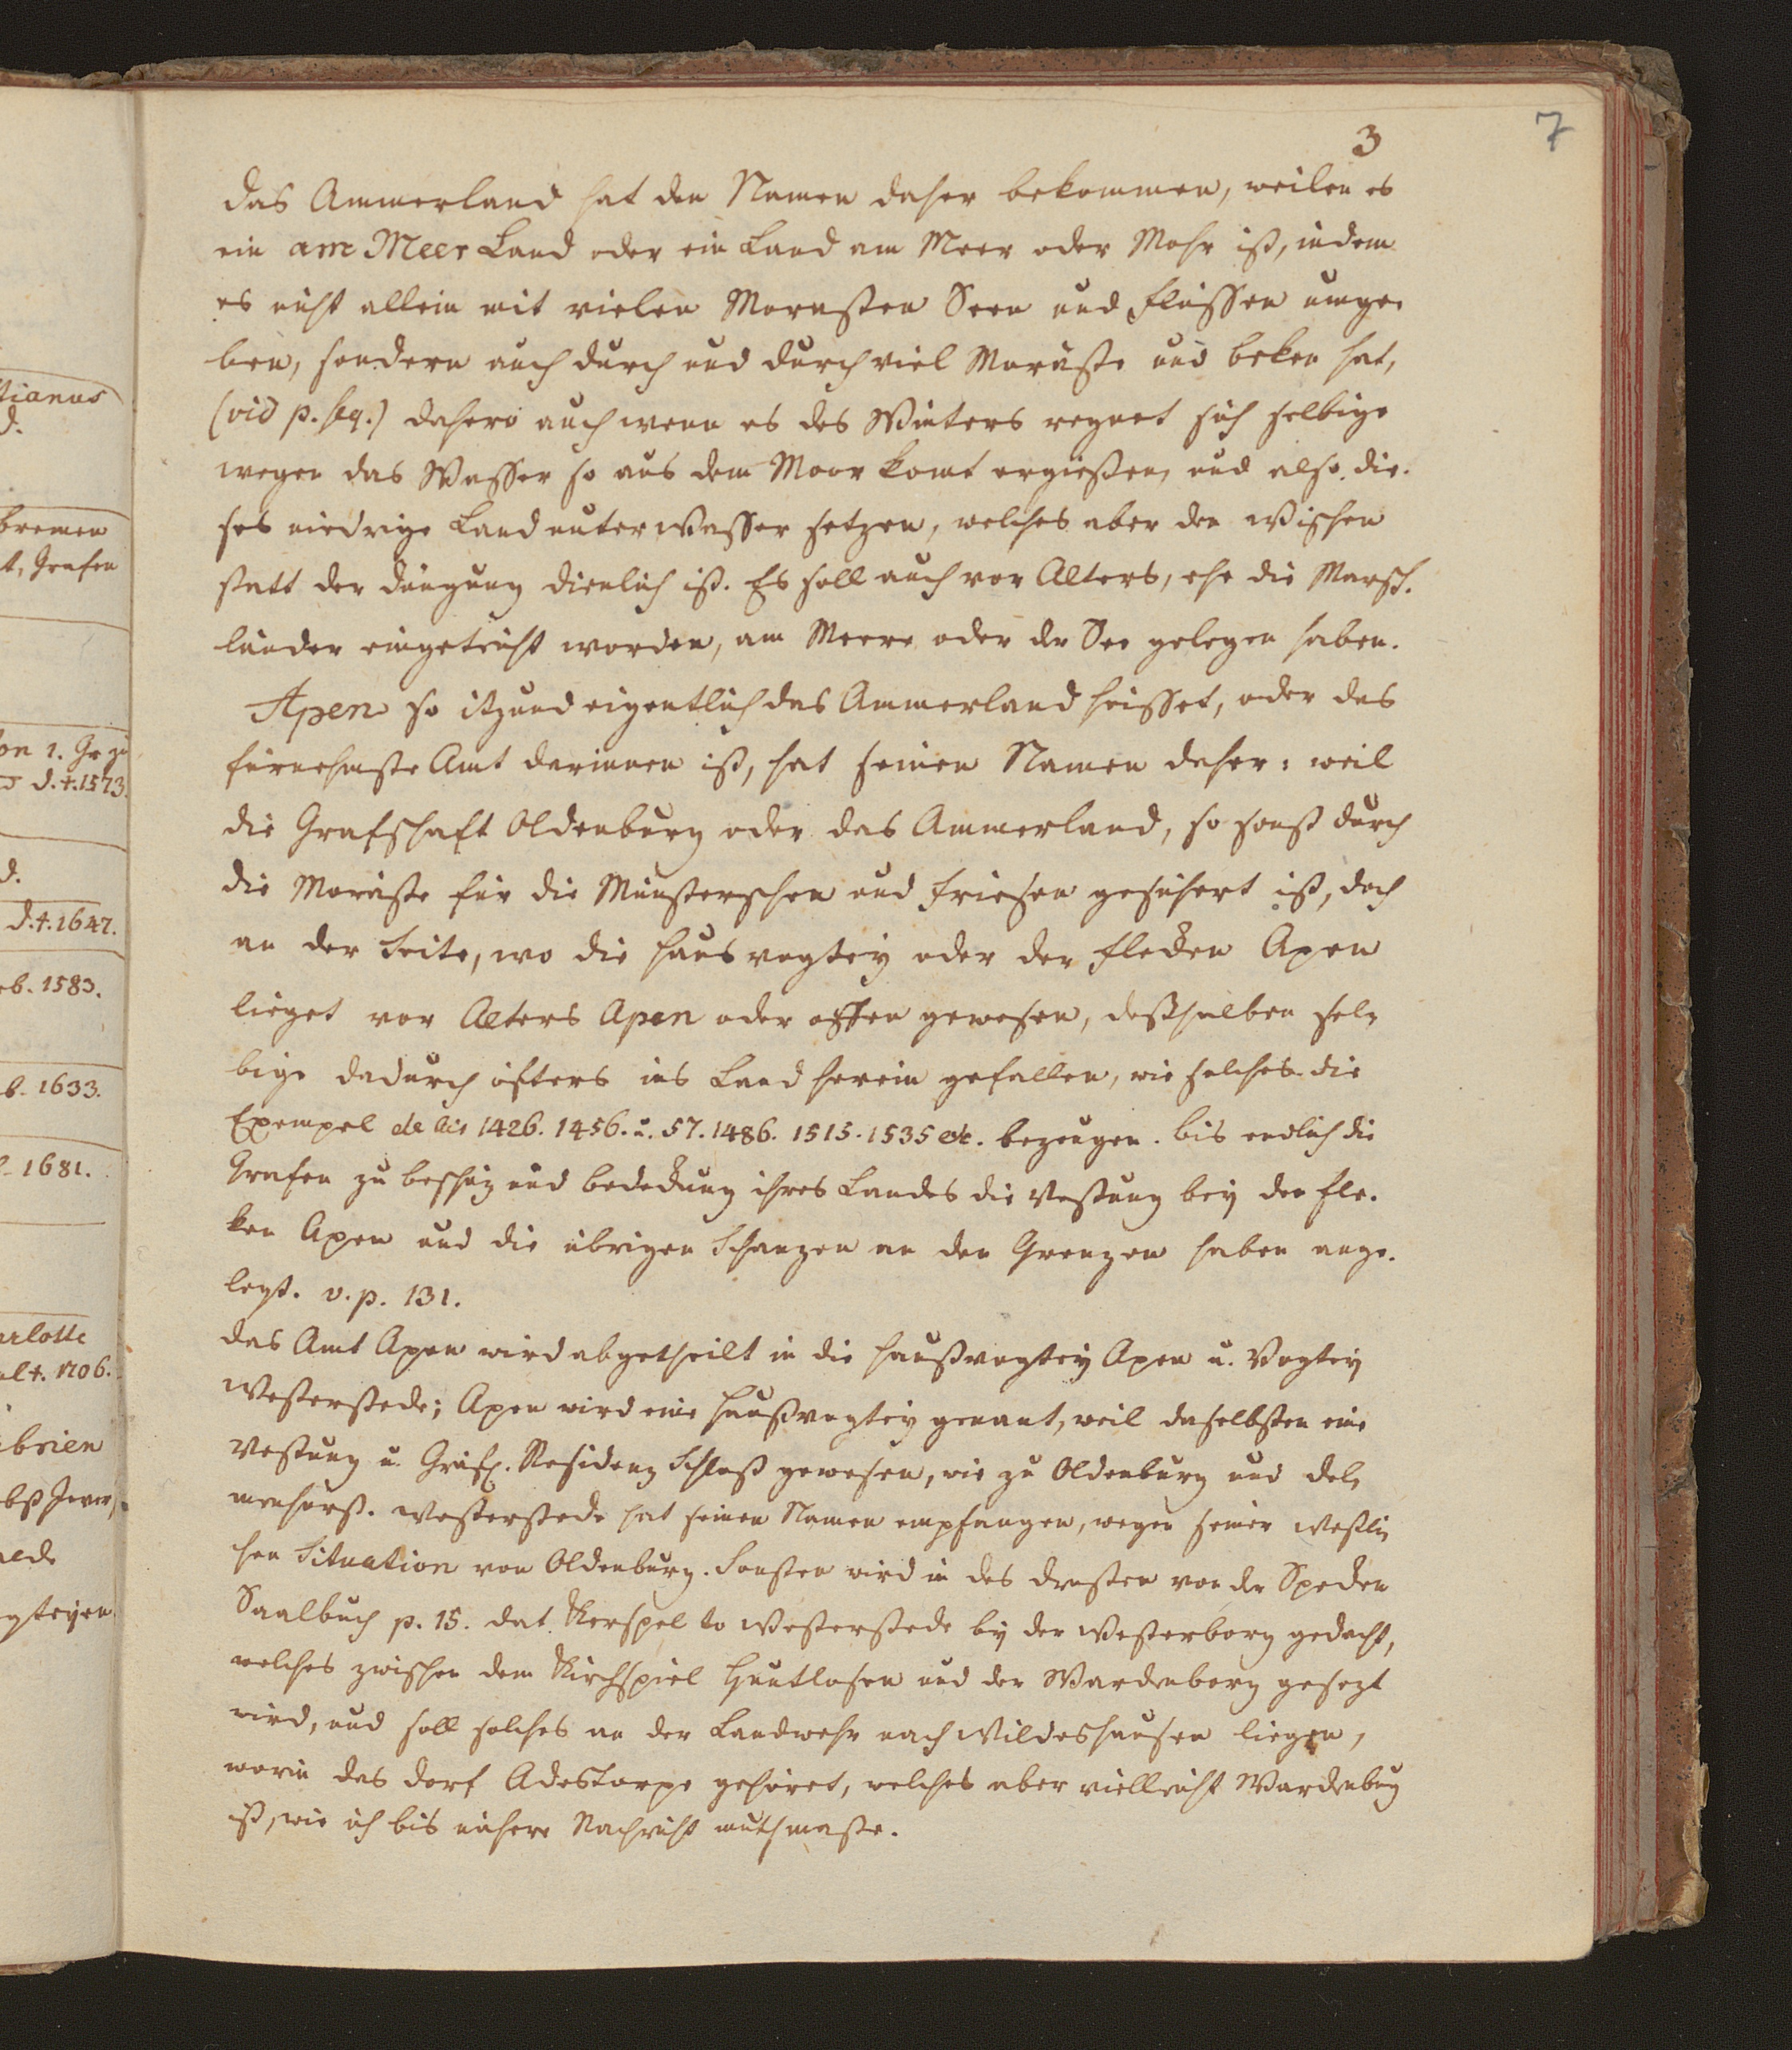 7
3
das Ammerland hat den Namen daher bekommen, weilen es
ein am Meer Land oder ein Land am Meer oder Mohr ist, indem
es nicht allein mit vielen Morasten Seen und Flüssen umge-
ben, sondern auch durch und durch viel Moräste und beken hat,
(vid p. seq.) dahero auch wenn es des Winters regnet sich selbige
wegen das Wasser so aus dem Moor komt ergießen, und also die-
ses niedrige Land unter Wasser setzen, welches aber den Wischen
statt der düngung dienlich ist. Es soll auch vor Alters, ehe die Marsch-
länder eingeteicht worden, am Meere oder der See gelegen haben.
Apen so itzund eigentlich das Ammerland heisset, oder das
fürnehmste Amt darinnen ist, hat seinen Namen daher: weil
die Grafschaft Oldenburg oder das Ammerland, so sonst durch
die Moräste für die Münsterschen und Friesen gesichert ist, doch
an der Seite, wo die Hausvogtey oder der Flecken Apen
lieget vor Alters Apen oder offen gewesen, deßhalben sel-
bige dadurch öfters ins Land herein gefallen, wie solches die
Exempel de aõ 1426. 1456. u. 57. 1486. 1515. 1535 etc. bezeugen. bis endlich die
Grafen zu beschüz und bedeckung ihres Landes die Vestung bey den Fle-
ken Apen und die übrigen Schanzen an den Grenzen haben ange-
legt. v. p. 131.
das Amt Apen wird abgetheilt in die Haußvogtey Apen u. Vogtey
Westerstede; Apen wird eine Haußvogtey genant, weil daselbsten eine
Vestung u. Gräfl. Residenz Schloß gewesen, wie zu Oldenburg und Del-
menhorst. Westerstede hat seinen Namen empfangen, wegen seiner westli-
hen Situation von Oldenburg. Sonsten wird in des drosten von der Specken
Saalbuch p. 15. dat Kerspel to Westerstede by der Westerborg gedacht,
welches zwischen dem Kirchspiel Huntlosen und der Wardenborg gesezt
wird, und soll solches an der Landwehr nach Wildeshausen liegen,
worin das dorf Adestorpe gehöret, welches aber vielleicht Wardenbug
ist, wie ich bis nähere Nachricht muthmasse.